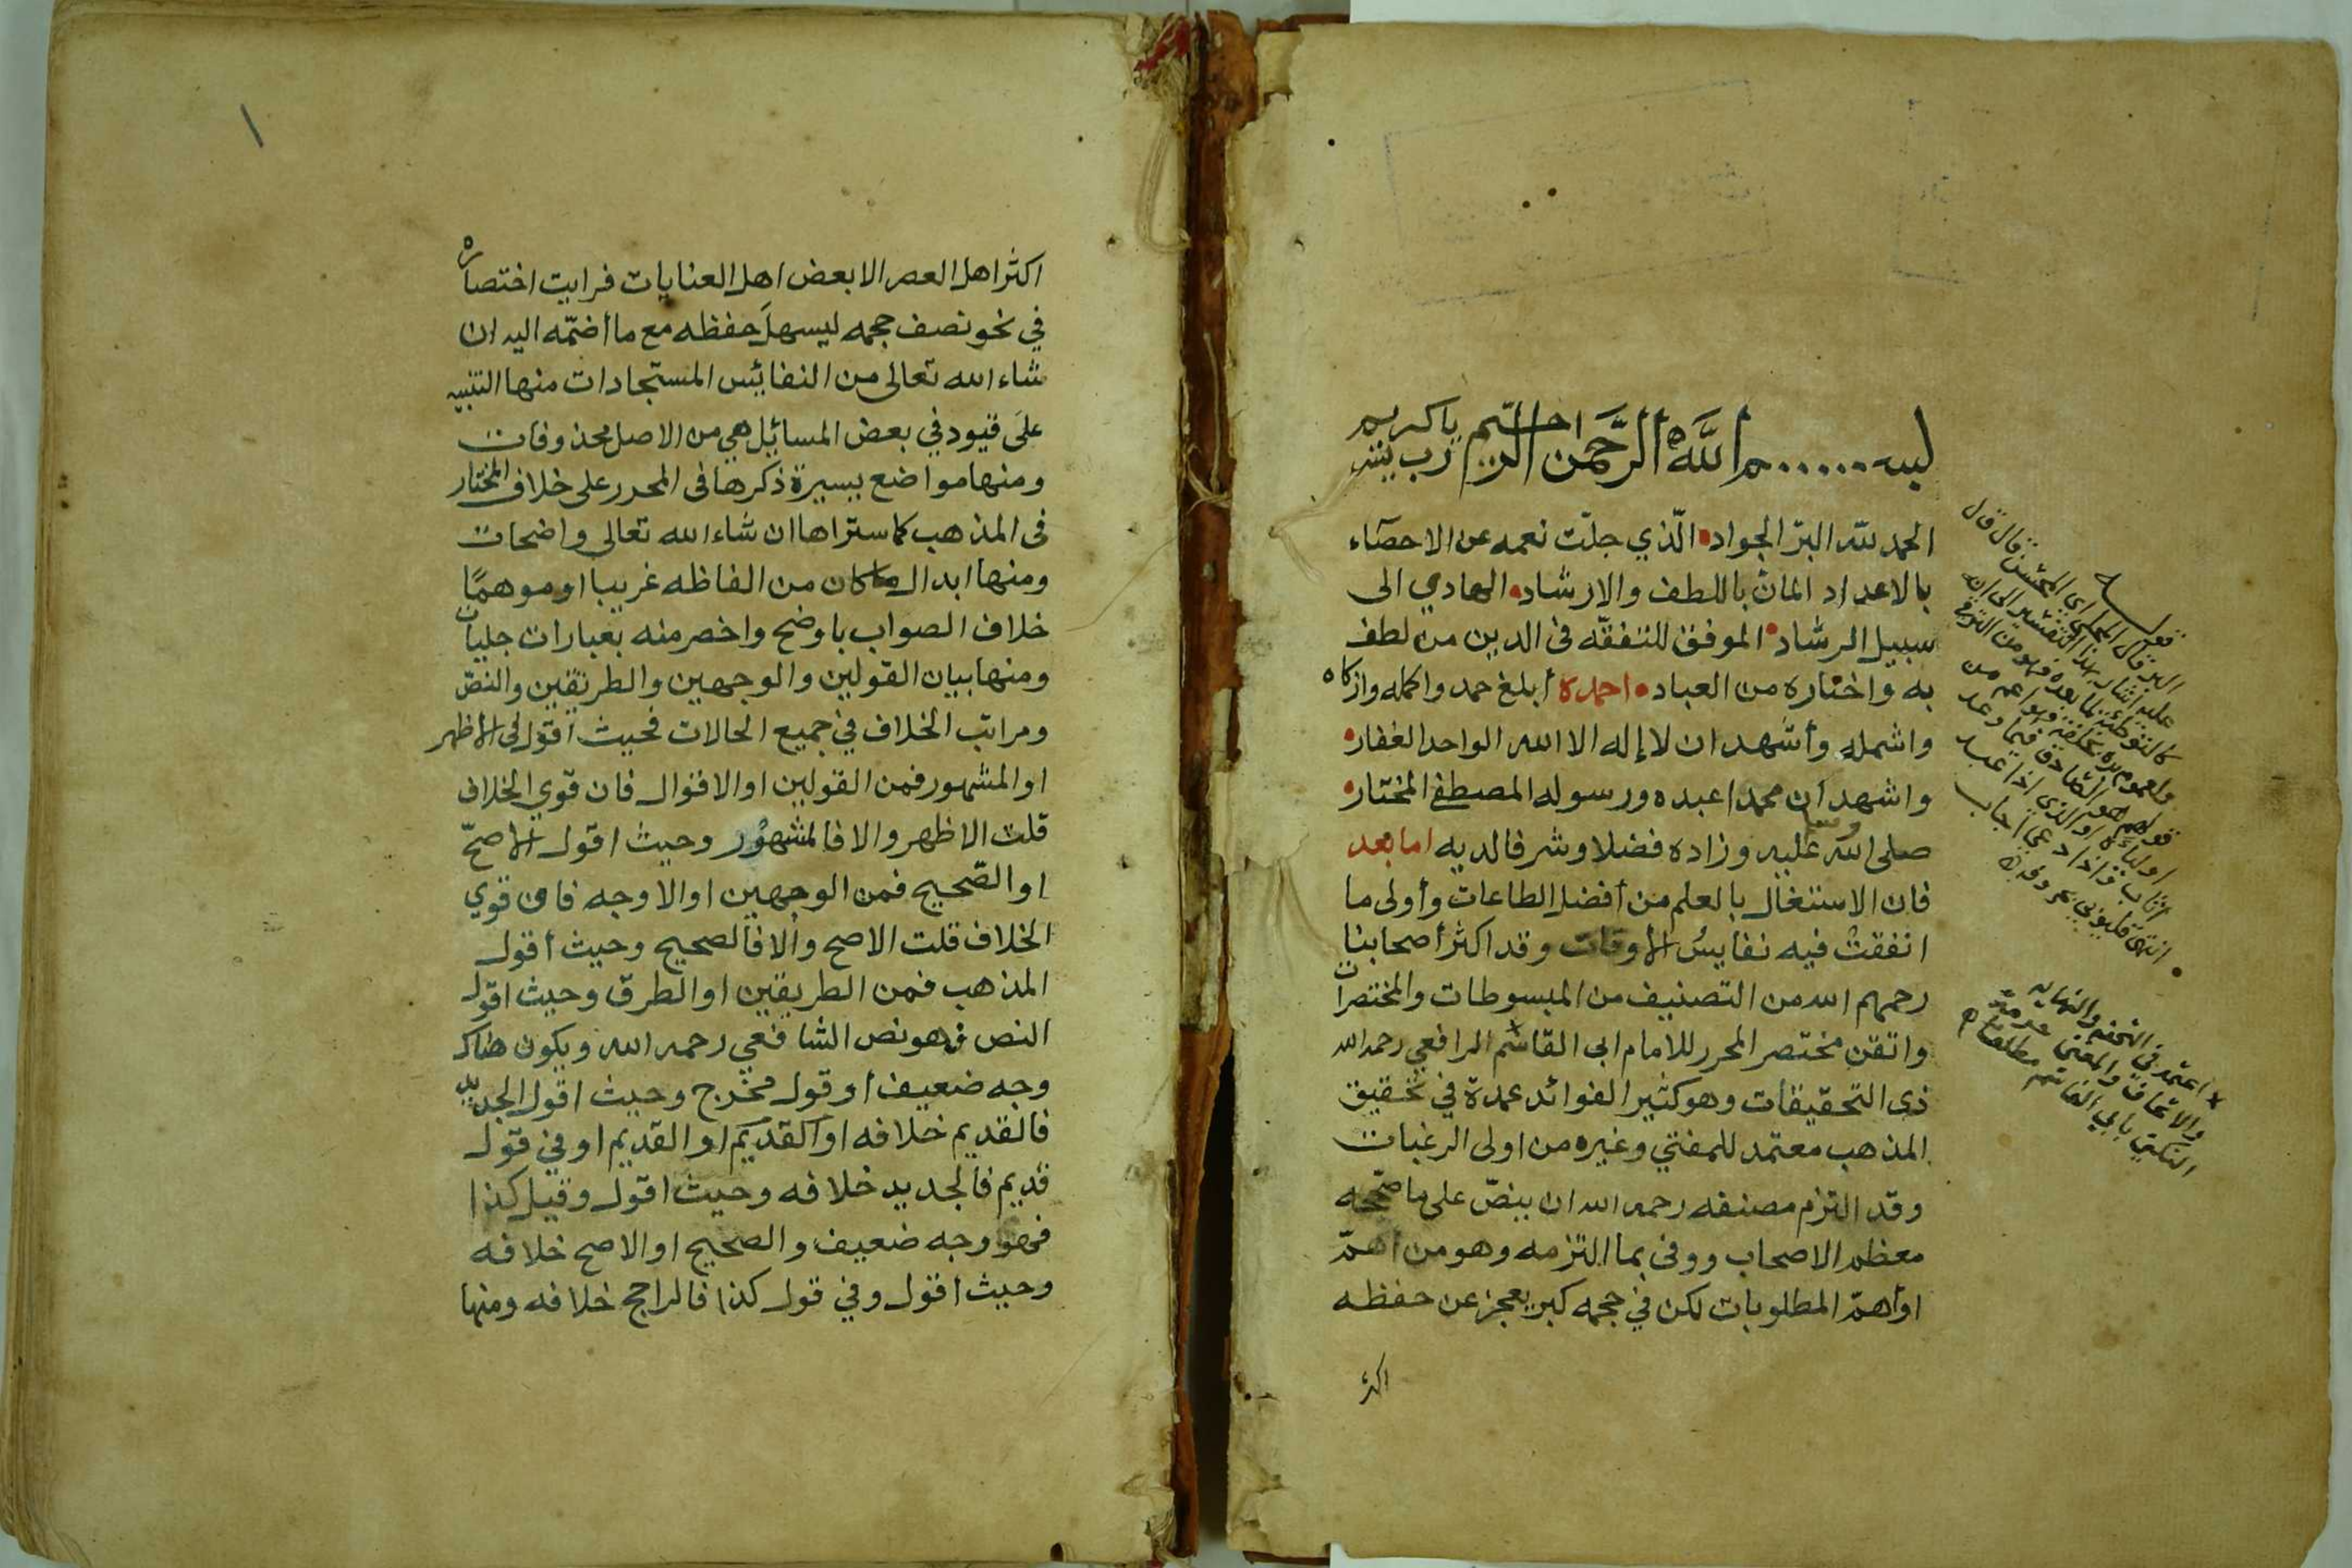 بسم الله الرحمن الرحيم رب يسر يا كريم
الحمد لله البرّ الجواد الّذي جلّت نعمه عن الاحصآء
بالاعداد المانّ باللطف والارشاد الهادي الى
سبيل الرشاد الموفق للتفقّه فى الدين من لطف
به واختاره من العباد احمده أبلغ حمد واكمله وازكاه
واشمله وأشهد ان لا إله الا الله الواحد الغفار
واشهد ان محمدا عبده ورسوله المصطفى المختار
صلى الله عليه وسلم وزاده فضلا وشرفا لديه اما بعد
فان الاشتغال بالعلم من أفضل الطاعات وأولى ما
انفقت فيه نفايسُ الأوقات وقد اكثر أصحابنا
رحمهم الله من التصنيف من المبسوطات والمختصرات
واتقن مختصر المحرر للامام ابى القاسم الرافعي رحمه الله
ذى التحقيقات وهو كثير الفوائد عمدة في تحقيق
المذهب معتمد للمفتي وغيره من اولى الرغبات
وقد التزم مصنفه رحمه الله ان ينصّ على ما صحّحه
معظم الاصحاب ووفى بما التزمه وهو من أهمّ
او أهمّ المطلوبات لكن في حجمه كبر يعجز عن حفظه
اكثر
قوله
البر قال المحلى اى المحسن قال قال
عليه اشار بهذا التفسير الى انه
اولياءه او الذى اذا عبد
اثاب واذا دعي اجاب
انتهى قليوبي بحروفه
اعتمد فى التحفه والنهايه
والمغنى حرمة
التكني بابي القاسم مطلقا
اكثر اهل العصر الا بعض اهل العنايات فرايت اختصاره
في نحو نصف حجمه ليسهل حفظه مع ما أضمّه اليه ان
شاء الله تعالى من النفائيس المستجادات منها التنبيه
على قيود في بعض المسائيل هي من الاصل محذوفات
ومنها مواضع يسيرة ذكرها فى المحرر على خلاف المختار
فى المذهب كما ستراها ان شاء الله تعالى واضحات
ومنها ابدال ما كان من الفاظه غريبا او موهمًا
خلاف الصواب باوضح واخصر منه بعبارات جليات
ومنها بيان القولين والوجهين والطريقين والنصّ
ومراتب الخلاف في جميع الحالات فحيث أقول فى الأظهر
او المشهور فمن القولين او الاقوال فان قوي الخلاف
قلت الاظهر والا فالمشهور وحيث اقول الأصحّ
او الصّحيح فمن الوجهين او الاوجه فان قوي
الخلاف قلت الاصح والا فالصحيح وحيث أقول
المذهب فمن الطريقين او الطرق وحيث اقول
النص فهو نص الشافعي رحمه الله ويكون هناك
وجه ضعيف أو قول مخرج وحيث اقول الجديد
فالقديم خلافه او القديم او القديم او في قول
قديم فالجديد خلافه وحيث اقول وقيل كذا
فهو وجه ضعيف والصحيح او الاصح خلافه
وحيث أقول وفي قول كذا فالراجح خلافه ومنها
١